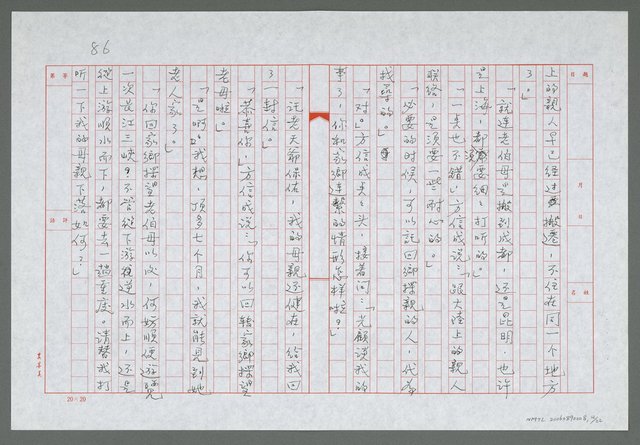 86
上的親人早已經過搬遷，不住在同一個地方
了。
「就連老伯母是搬到成都，還是昆明，也許
是上海，都須要細細打聽的。」
「一點也不錯，」方信成說：「跟大陸上的親人
聯絡，是須要一些耐心的。」
「必要的時候，可以託回鄉探親的人，代為
找尋的。」
「對。」方信成點點頭，接著問：「光顧談我的
事了，你和家鄉連繫的情形怎樣啦？」
「託老天爺保佑，我的母親還健在，給我回
了一封信。」
「恭喜你，」方信成說：「你可以回轉家鄉探望
老母啦。」
「是啊，我想，頂多七個月，我就能見到她
老人家了。」
「你回家鄉探望老伯母以後，何妨順便遊覽
一次長江三峽？不管從下游往逆水而上，還是
從上游順水而下，都要去一趟重慶。請替我打
聽一下我的母親下落如何？」
題目
月 日
姓名
第 頁
評語
20×20
NMTL 20060890008